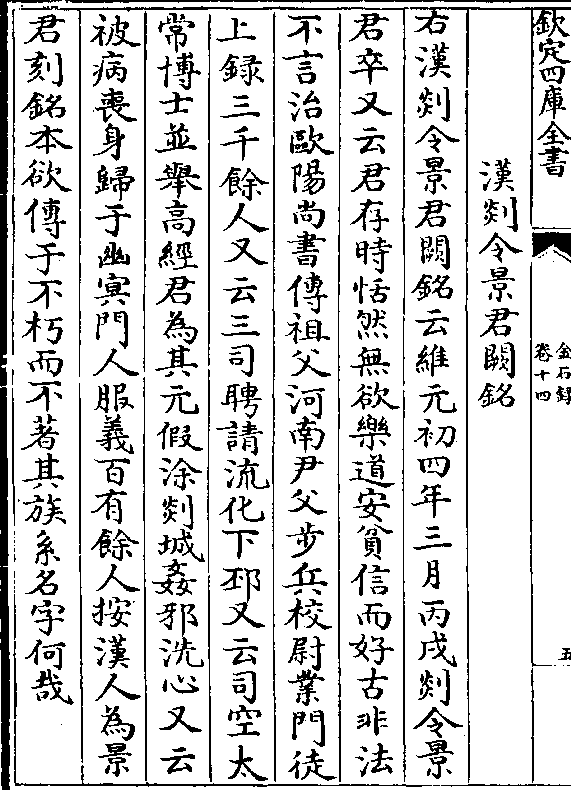 欽定四庫全書
金石錄
卷十四
五
漢郯令景君闕銘
右漢郯令景君闕銘云維元初四年三月丙戌郯令景
君卒又云君存時恬然無欲樂道安貧信而好古非法
不言治歐陽尚書傳祖父河南尹父步兵校尉業門徒
上録三千餘人又云三司聘請流化下邳又云司空太
常博士並舉高經君為其元假涂郯城姦邪洗心又云
被病喪身歸于幽冥門人服義百有餘人按漢人為景
君刻銘本欲傳于不朽而不著其族系名字何哉